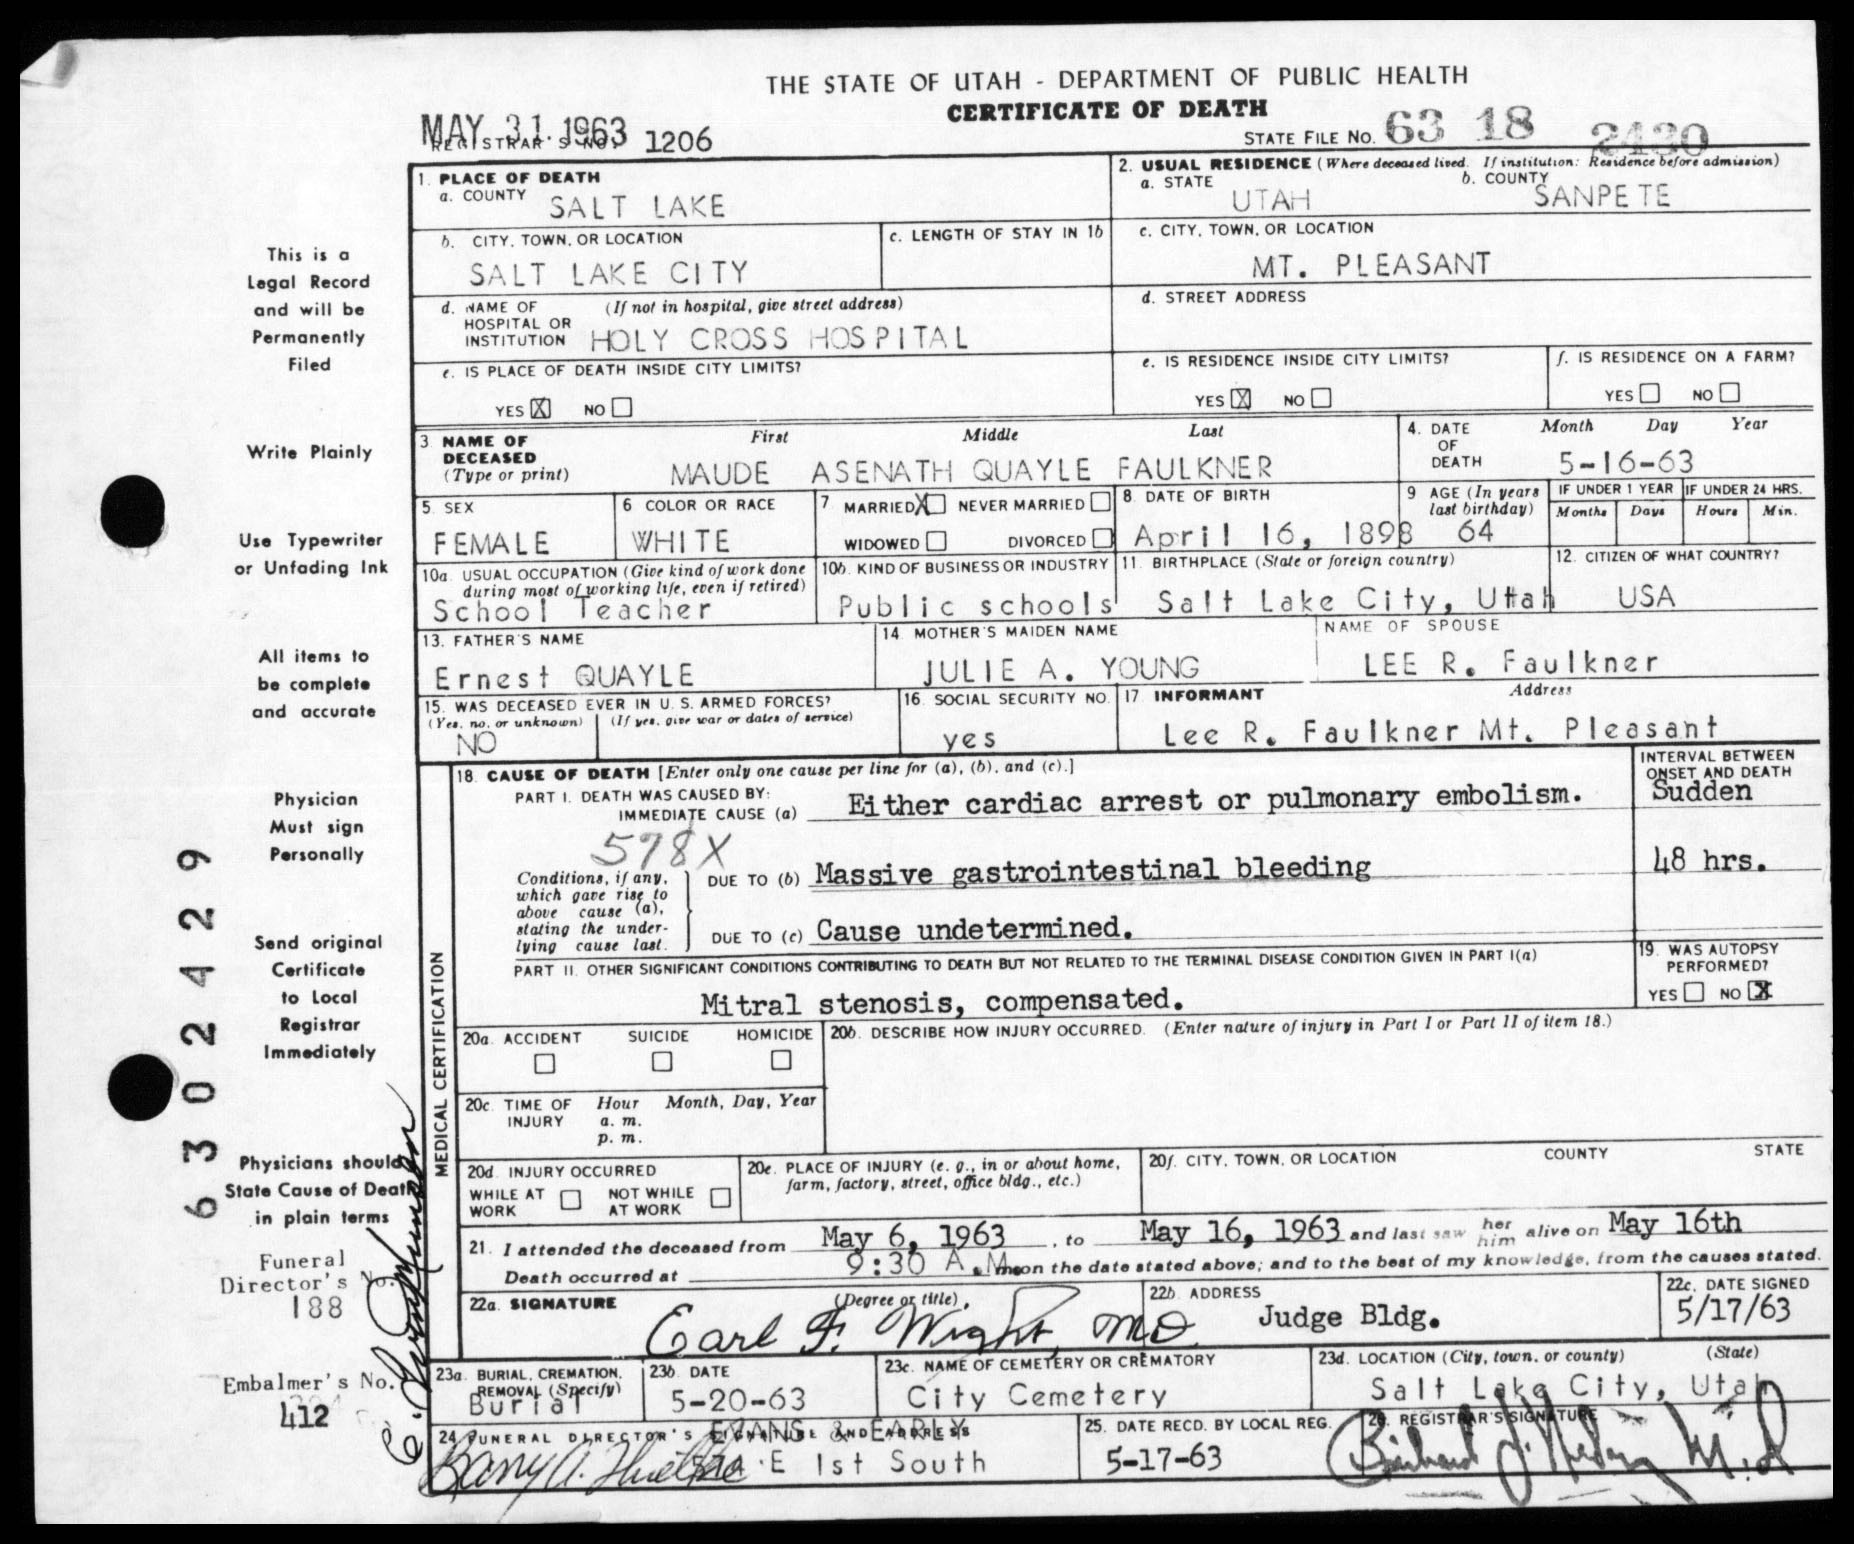 THE STATE OF UTAH - DEPARTMENT OF PUBLIC HEALTH
CERTIFICATE OF DEATH
MAY 31 1963
REGISTRAR'S NO. 1206
STATE FILE NO. 63 18 2430
1. PLACE OF DEATH
a. COUNTY SALT LAKE
2. USUAL RESIDENCE (Where deceased lived. If institution: Residence before admission)
a. STATE UTAH b. COUNTY SANPETE
b. CITY, TOWN, OR LOCATION SALT LAKE CITY
c. LENGTH OF STAY IN 1b
c. CITY, TOWN, OR LOCATION MT. PLEASANT
d. NAME OF HOSPITAL OR INSTITUTION (If not in hospital, give street address) HOLY CROSS HOSPITAL
d. STREET ADDRESS
e. IS PLACE OF DEATH INSIDE CITY LIMITS?
YES X NO
e. IS RESIDENCE INSIDE CITY LIMITS?
YES X NO
f. IS RESIDENCE ON A FARM?
YES NO
3 NAME OF DECEASED (Type or print) First Middle Last
MAUDE ASENATH QUAYLE FAULKNER
4. DATE OF DEATH Month Day Year
5-16-63
5. SEX FEMALE
6 COLOR OR RACE WHITE
7 MARRIED X NEVER MARRIED
WIDOWED DIVORCED
8. DATE OF BIRTH April 16, 1898
9 AGE (In years last birthday) 64
IF UNDER 1 YEAR Months Days
IF UNDER 24 HRS. Hours Min.
10a. USUAL OCCUPATION (Give kind of work done during most of working life, even if retired)
School Teacher
10b. KIND OF BUSINESS OR INDUSTRY
Public schools
11. BIRTHPLACE (State or foreign country)
Salt Lake City, Utah
12. CITIZEN OF WHAT COUNTRY?
USA
13. FATHER'S NAME
Ernest QUAYLE
14 MOTHER'S MAIDEN NAME
JULIE A. YOUNG
NAME OF SPOUSE
LEE R. Faulkner
15. WAS DECEASED EVER IN U. S. ARMED FORCES?
(Yes, no, or unknown) (If yes, give war or dates of service)
NO
16. SOCIAL SECURITY NO.
yes
17 INFORMANT Address
Lee R. Faulkner Mt. Pleasant
MEDICAL CERTIFICATION
18. CAUSE OF DEATH [Enter only one cause per line for (a), (b), and (c).]
INTERVAL BETWEEN ONSET AND DEATH
PART I. DEATH WAS CAUSED BY:
IMMEDIATE CAUSE (a) Either cardiac arrest or pulmonary embolism. Sudden
578X
Conditions, if any, which gave rise to above cause (a), stating the underlying cause last.
DUE TO (b) Massive gastrointestinal bleeding 48 hrs.
DUE TO (c) Cause undetermined.
PART II. OTHER SIGNIFICANT CONDITIONS CONTRIBUTING TO DEATH BUT NOT RELATED TO THE TERMINAL DISEASE CONDITION GIVEN IN PART I(a)
Mitral stenosis, compensated.
19. WAS AUTOPSY PERFORMED?
YES NO X
20a. ACCIDENT SUICIDE HOMICIDE
20b. DESCRIBE HOW INJURY OCCURRED. (Enter nature of injury in Part I or Part II of item 18.)
20c. TIME OF INJURY Hour Month, Day, Year
a. m.
p. m.
20d. INJURY OCCURRED
WHILE AT WORK NOT WHILE AT WORK
20e. PLACE OF INJURY (e. g., in or about home, farm, factory, street, office bldg., etc.)
20f. CITY, TOWN, OR LOCATION COUNTY STATE
21. I attended the deceased from May 6, 1963, to May 16, 1963 and last saw her him alive on May 16th
Death occurred at 9:30 A.M. m on the date stated above; and to the best of my knowledge, from the causes stated.
22a. SIGNATURE (Degree or title)
Earl F. Wight, MD
22b. ADDRESS
Judge Bldg.
22c. DATE SIGNED
5/17/63
23a. BURIAL, CREMATION, REMOVAL (Specify)
Burial
23b. DATE
5-20-63
23c. NAME OF CEMETERY OR CREMATORY
City Cemetery
23d. LOCATION (City, town, or county) (State)
Salt Lake City, Utah
24 FUNERAL DIRECTOR'S SIGNATURE AND ADDRESS
EVANS & EARLY
E 1st South
25. DATE RECD. BY LOCAL REG.
5-17-63
26. REGISTRAR'S SIGNATURE
This is a
Legal Record
and will be
Permanently
Filed
Write Plainly
Use Typewriter
or Unfading Ink
All items to
be complete
and accurate
Physician
Must sign
Personally
Send original
Certificate
to Local
Registrar
Immediately
Physicians should
State Cause of Death
in plain terms
Funeral
Director's No.
188
Embalmer's No.
412
6302429